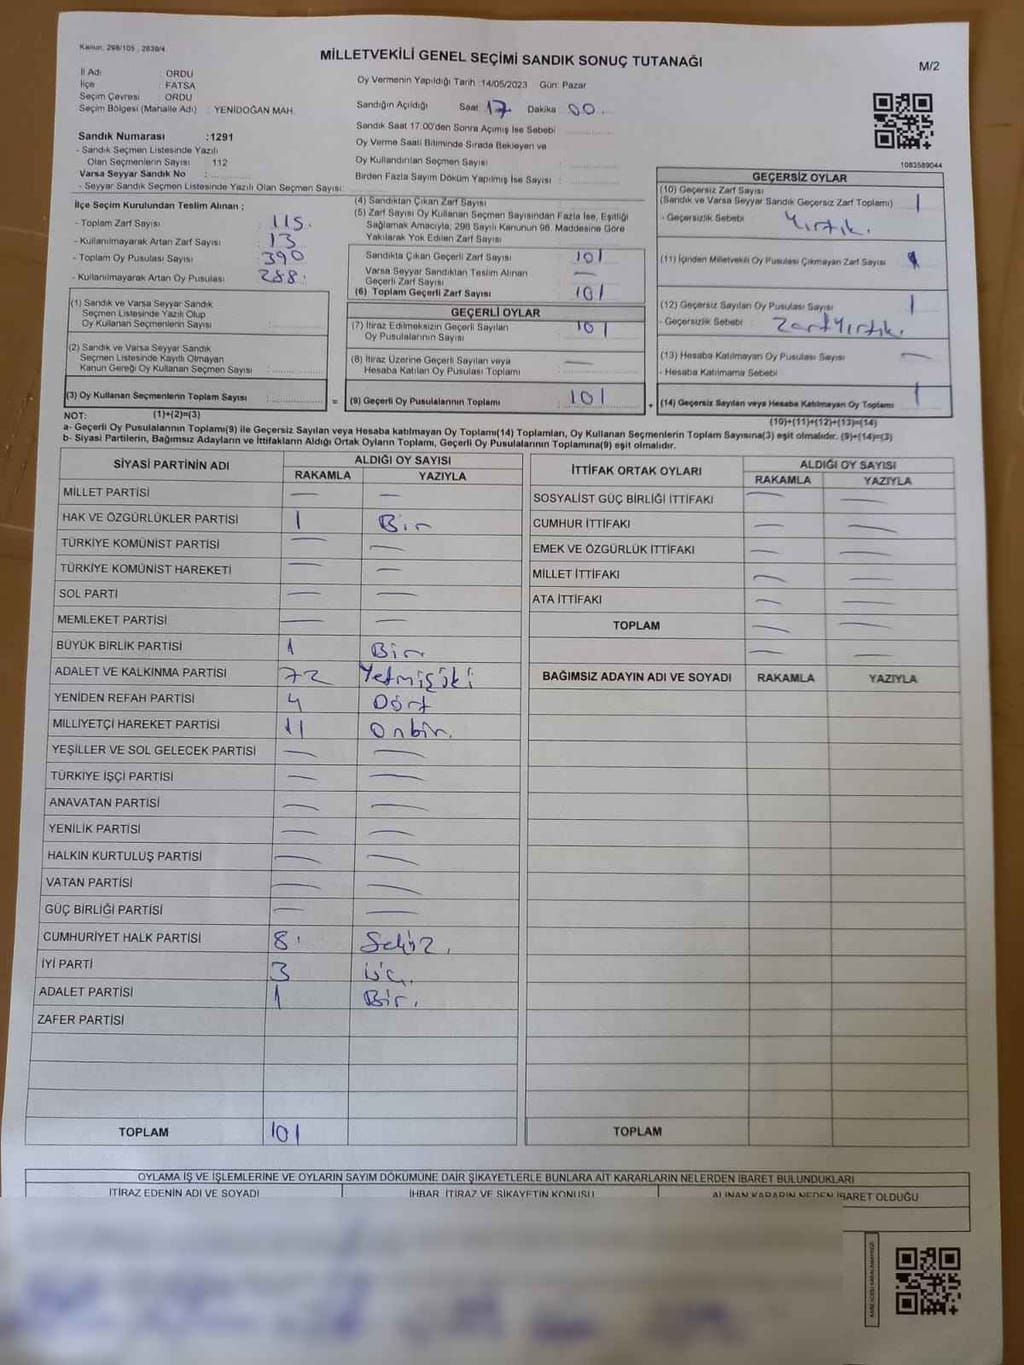 Kanun: 298/105 , 2839/4
MİLLETVEKİLİ GENEL SEÇİMİ SANDIK SONUÇ TUTANAĞI
M/2
İl Adı : ORDU
İlçe : FATSA
Seçim Çevresi : ORDU
Seçim Bölgesi (Mahalle Adı) : YENİDOĞAN MAH.
Oy Vermenin Yapıldığı Tarih :14/05/2023 Gün: Pazar
Sandığın Açıldığı Saat 17 Dakika 00
Sandık Saat 17:00'den Sonra Açımış İse Sebebi
Oy Verme Saati Bitiminde Sırada Bekleyen ve
Oy Kullandırılan Seçmen Sayısı :
Birden Fazla Sayım Döküm Yapılmış İse Sayısı :
1083589044
Sandık Numarası :1291
- Sandık Seçmen Listesinde Yazılı
Olan Seçmenlerin Sayısı : 112
Varsa Seyyar Sandık No :
- Seyyar Sandık Seçmen Listesinde Yazılı Olan Seçmen Sayısı:
İlçe Seçim Kurulundan Teslim Alınan ;
- Toplam Zarf Sayısı : 115.
- Kullanılmayarak Artan Zarf Sayısı : 13
- Toplam Oy Pusulası Sayısı : 390
- Kullanılmayarak Artan Oy Pusulası : 288.
(1) Sandık ve Varsa Seyyar Sandık
Seçmen Listesinde Yazılı Olup
Oy Kullanan Seçmenlerin Sayısı :
(2) Sandık ve Varsa Seyyar Sandık
Seçmen Listesinde Kayıtlı Olmayan
Kanun Gereği Oy Kullanan Seçmen Sayısı :
(3) Oy Kullanan Seçmenlerin Toplam Sayısı :
(1)+(2)=(3)
(4) Sandıktan Çıkan Zarf Sayısı
(5) Zarf Sayısı Oy Kullanan Seçmen Sayısından Fazla İse, Eşitliği
Sağlamak Amacıyla, 298 Sayılı Kanunun 98. Maddesine Göre
Yakılarak Yok Edilen Zarf Sayısı
Sandıkta Çıkan Geçerli Zarf Sayısı 101
Varsa Seyyar Sandıktan Teslim Alınan
Geçerli Zarf Sayısı —
(6) Toplam Geçerli Zarf Sayısı 101
GEÇERLİ OYLAR
(7) İtiraz Edilmeksizin Geçerli Sayılan
Oy Pusulasının Sayısı 101
(8) İtiraz Üzerine Geçerli Sayılan veya
Hesaba Katılan Oy Pusulası Toplamı —
= (9) Geçerli Oy Pusulalarının Toplamı 101
GEÇERSİZ OYLAR
(10) Geçersiz Zarf Sayısı
(Sandık ve Varsa Seyyar Sandık Geçersiz Zarf Toplamı) 1
- Geçersizlik Sebebi : Yırtık.
(11) İçinden Milletvekili Oy Pusulası Çıkmayan Zarf Sayısı
(12) Geçersiz Sayılan Oy Pusulası Sayısı 1
- Geçersizlik Sebebi : Zarf Yırtık.
(13) Hesaba Katılmayan Oy Pusulası Sayısı —
- Hesaba Katılmama Sebebi
+ (14) Geçersiz Sayılan veya Hesaba Katılmayan Oy Toplamı 1
(10)+(11)+(12)+(13)=(14)
NOT:
a- Geçerli Oy Pusulalarının Toplamı(9) ile Geçersiz Sayılan veya Hesaba katılmayan Oy Toplamı(14) Toplamları, Oy Kullanan Seçmenlerin Toplam Sayısına(3) eşit olmalıdır. (9)+(14)=(3)
b- Siyasi Partilerin, Bağımsız Adayların ve İttifakların Aldığı Ortak Oyların Toplamı, Geçerli Oy Pusulalarının Toplamına(9) eşit olmalıdır.
SİYASİ PARTİNİN ADI ALDIĞI OY SAYISI
RAKAMLA YAZIYLA
MİLLET PARTİSİ — —
HAK VE ÖZGÜRLÜKLER PARTİSİ 1 Bir
TÜRKİYE KOMÜNİST PARTİSİ — —
TÜRKİYE KOMÜNİST HAREKETİ — —
SOL PARTİ — —
MEMLEKET PARTİSİ — —
BÜYÜK BİRLİK PARTİSİ 1 Bir
ADALET VE KALKINMA PARTİSİ 72 Yetmişiki
YENİDEN REFAH PARTİSİ 4 Dört
MİLLİYETÇİ HAREKET PARTİSİ 11 Onbir.
YEŞİLLER VE SOL GELECEK PARTİSİ — —
TÜRKİYE İŞÇİ PARTİSİ — —
ANAVATAN PARTİSİ — —
YENİLİK PARTİSİ — —
HALKIN KURTULUŞ PARTİSİ — —
VATAN PARTİSİ — —
GÜÇ BİRLİĞİ PARTİSİ — —
CUMHURİYET HALK PARTİSİ 8. Sekiz.
İYİ PARTİ 3 Üç.
ADALET PARTİSİ 1 Bir.
ZAFER PARTİSİ
TOPLAM 101
İTTİFAK ORTAK OYLARI ALDIĞI OY SAYISI
RAKAMLA YAZIYLA
SOSYALİST GÜÇ BİRLİĞİ İTTİFAKI — —
CUMHUR İTTİFAKI — —
EMEK VE ÖZGÜRLÜK İTTİFAKI — —
MİLLET İTTİFAKI — —
ATA İTTİFAKI — —
TOPLAM — —
— —
BAĞIMSIZ ADAYIN ADI VE SOYADI RAKAMLA YAZIYLA
TOPLAM
OYLAMA İŞ VE İŞLEMLERİNE VE OYLARIN SAYIM DÖKÜMÜNE DAİR ŞİKAYETLERLE BUNLARA AİT KARARLARIN NELERDEN İBARET BULUNDUKLARI
İTİRAZ EDENİN ADI VE SOYADI İHBAR, İTİRAZ VE ŞİKAYETİN KONUSU ALINAN KARARIN NEDEN İBARET OLDUĞU